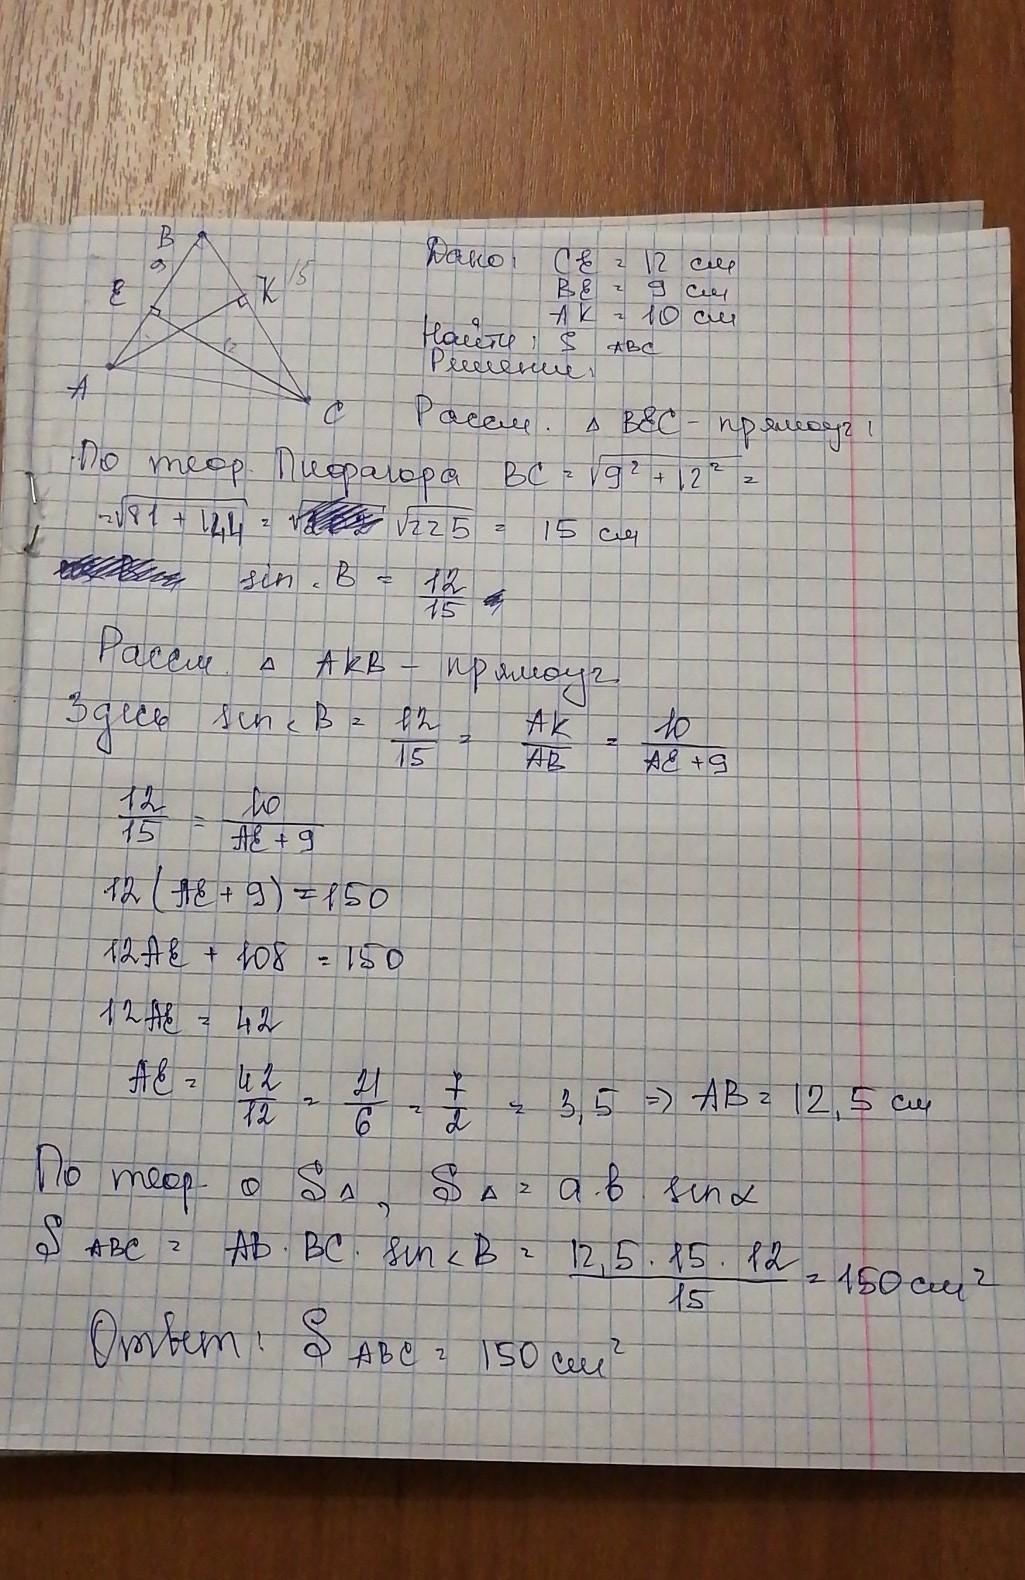 B
9
E
K
15
12
A
C
Дано: CE = 12 см
BE = 9 см
AK = 10 см
Найти: S ABC
Решение:
Рассм. △ BEC - прямоуг:
По теор. Пифагора BC = √9² + 12² =
= √81 + 144 = √225 = 15 см
sin ∠B = 12/15
Рассм. △ AKB - прямоуг.
Здесь sin ∠B = 12/15 = AK/AB = 10/AE + 9
12/15 = 10/AE + 9
12(AE + 9) = 150
12AE + 108 = 150
12AE = 42
AE = 42/12 = 21/6 = 7/2 = 3,5 => AB = 12,5 см
По теор. о S△, S△ = a·b sinα
S ABC = AB · BC · sin∠B = 12,5 · 15 · 12/15 = 150 см²
Ответ: S ABC = 150 см²